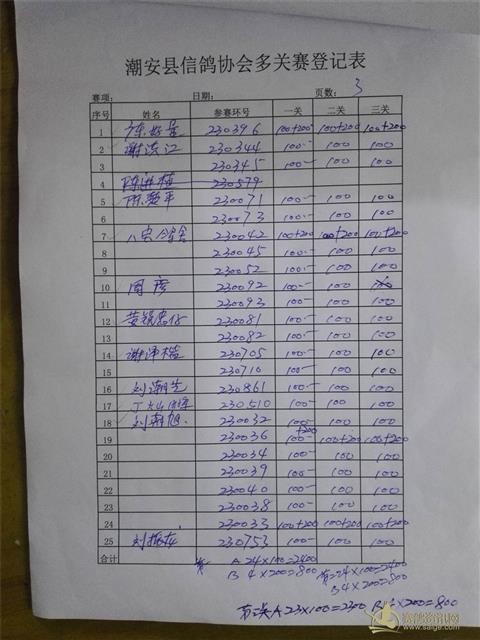 潮安县信鸽协会多关赛登记表
赛项: 日期: 页数: 3
序号 姓名 参赛环号 一关 二关 三关
1 230396 100+200 100+200 100+200
2 谢汉江 230344 100- 100 100
3 230345 100- 100 100
4 陈进植 230579
5 陈楚平 230071 100- 100 100
6 230073 100- 100 100
7 230042 100+200 100+200 100+200
8 230045 100- 100 100
9 230052 100- 100 100
10 周彦 230092 100- 100 100
11 230093 100- 100 100
12 230081 100- 100 100
13 230082 100- 100 100
14 谢沛楷 230705 100- 100 100
15 230710 100- 100 100
16 刘潮先 230861 100- 100 100
17 230510 100- 100 100
18 刘潮旭 230032 100- 100 100
19 230036 100+200 100+200 100+200
20 230034 100- 100 100
21 230039 100- 100 100
22 230040 100- 100 100
23 230038 100- 100 100
24 230033 100+200 100+200 100+200
25 刘振存 230753 100- 100 100
合计 A 24×100=2400
B 4×200=800
24×100=2400
B 4×200=800
A 23×100=2300 B 4×200=800
www.saige.com